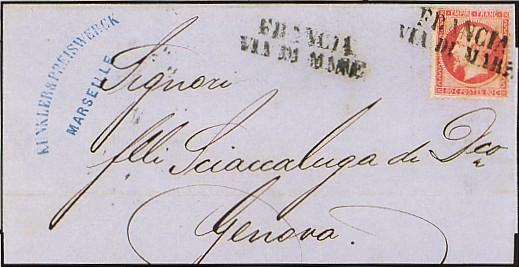 KUNKLER & PREISWERCK
MARSEILLE
FRANCIA
VIA DI MARE
FRANCIA
VIA DI MARE
EMPIRE FRANC
80 C POSTES 80 C
Signori
flli Sciaccaluga di Dco
Genova.